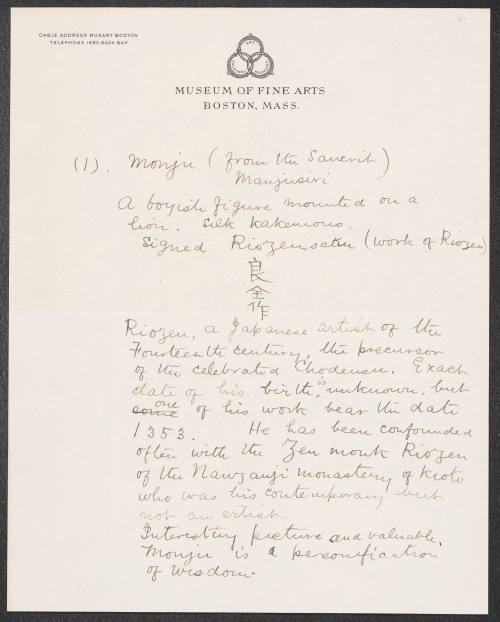 CABLE ADDRESS MUSART BOSTON
TELEPHONE 1682 BACK BAY
MUSEUM OF FINE ARTS
BOSTON, MASS.
(1). Monju (from the Sanscrit)
Manjusiri
A boyish figure mounted on a
lion. Silk Kakemono.
Signed Riozen, saku (work of Riozen)
良
全
作
Riozen, a Japanese artist of the
Fourteenth century, the precursor
of the celebrated Chodensu. Exact
date of his birth is unknown, but
some one of his work bear the date
1353. He has been confounded
often with the Zen monk Riozen
of the Nanzanji monastery of Kioto
who was his contemporary but
not an artist.
Interesting picture and valuable.
Monju is a personification
of wisdom.